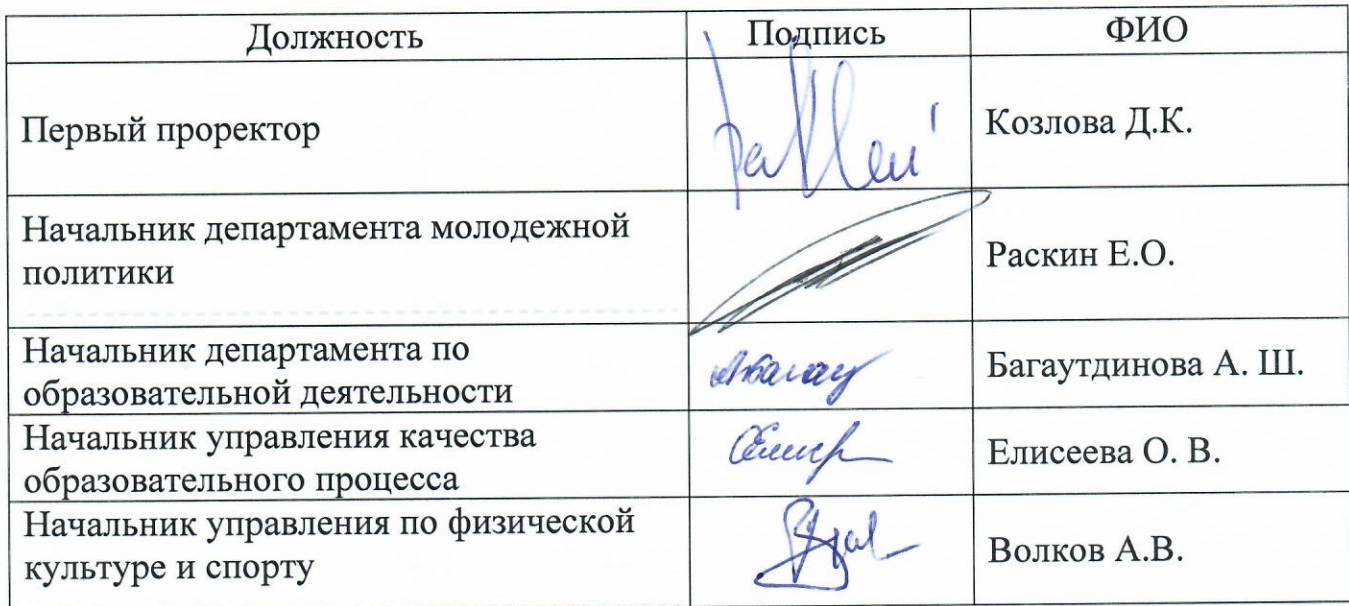 Должность Подпись ФИО
Первый проректор Козлова Д.К.
Начальник департамента молодежной
политики
Раскин Е.О.
Начальник департамента по
образовательной деятельности
Багаутдинова А. Ш.
Начальник управления качества
образовательного процесса
Елисеева О. В.
Начальник управления по физической
культуре и спорту
Волков А.В.